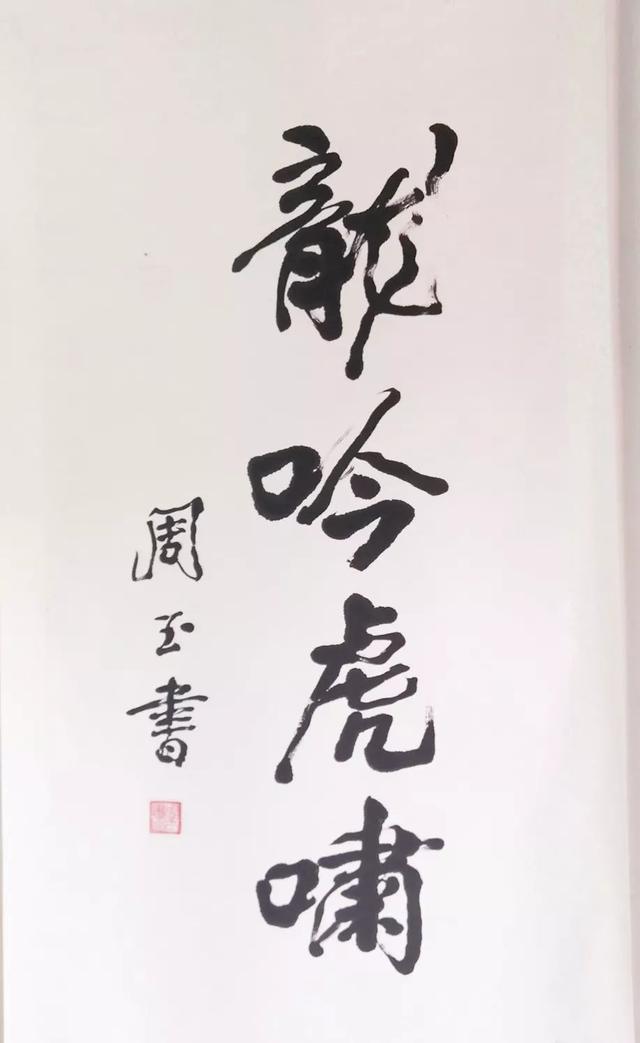 龍吟虎嘯
周玉書